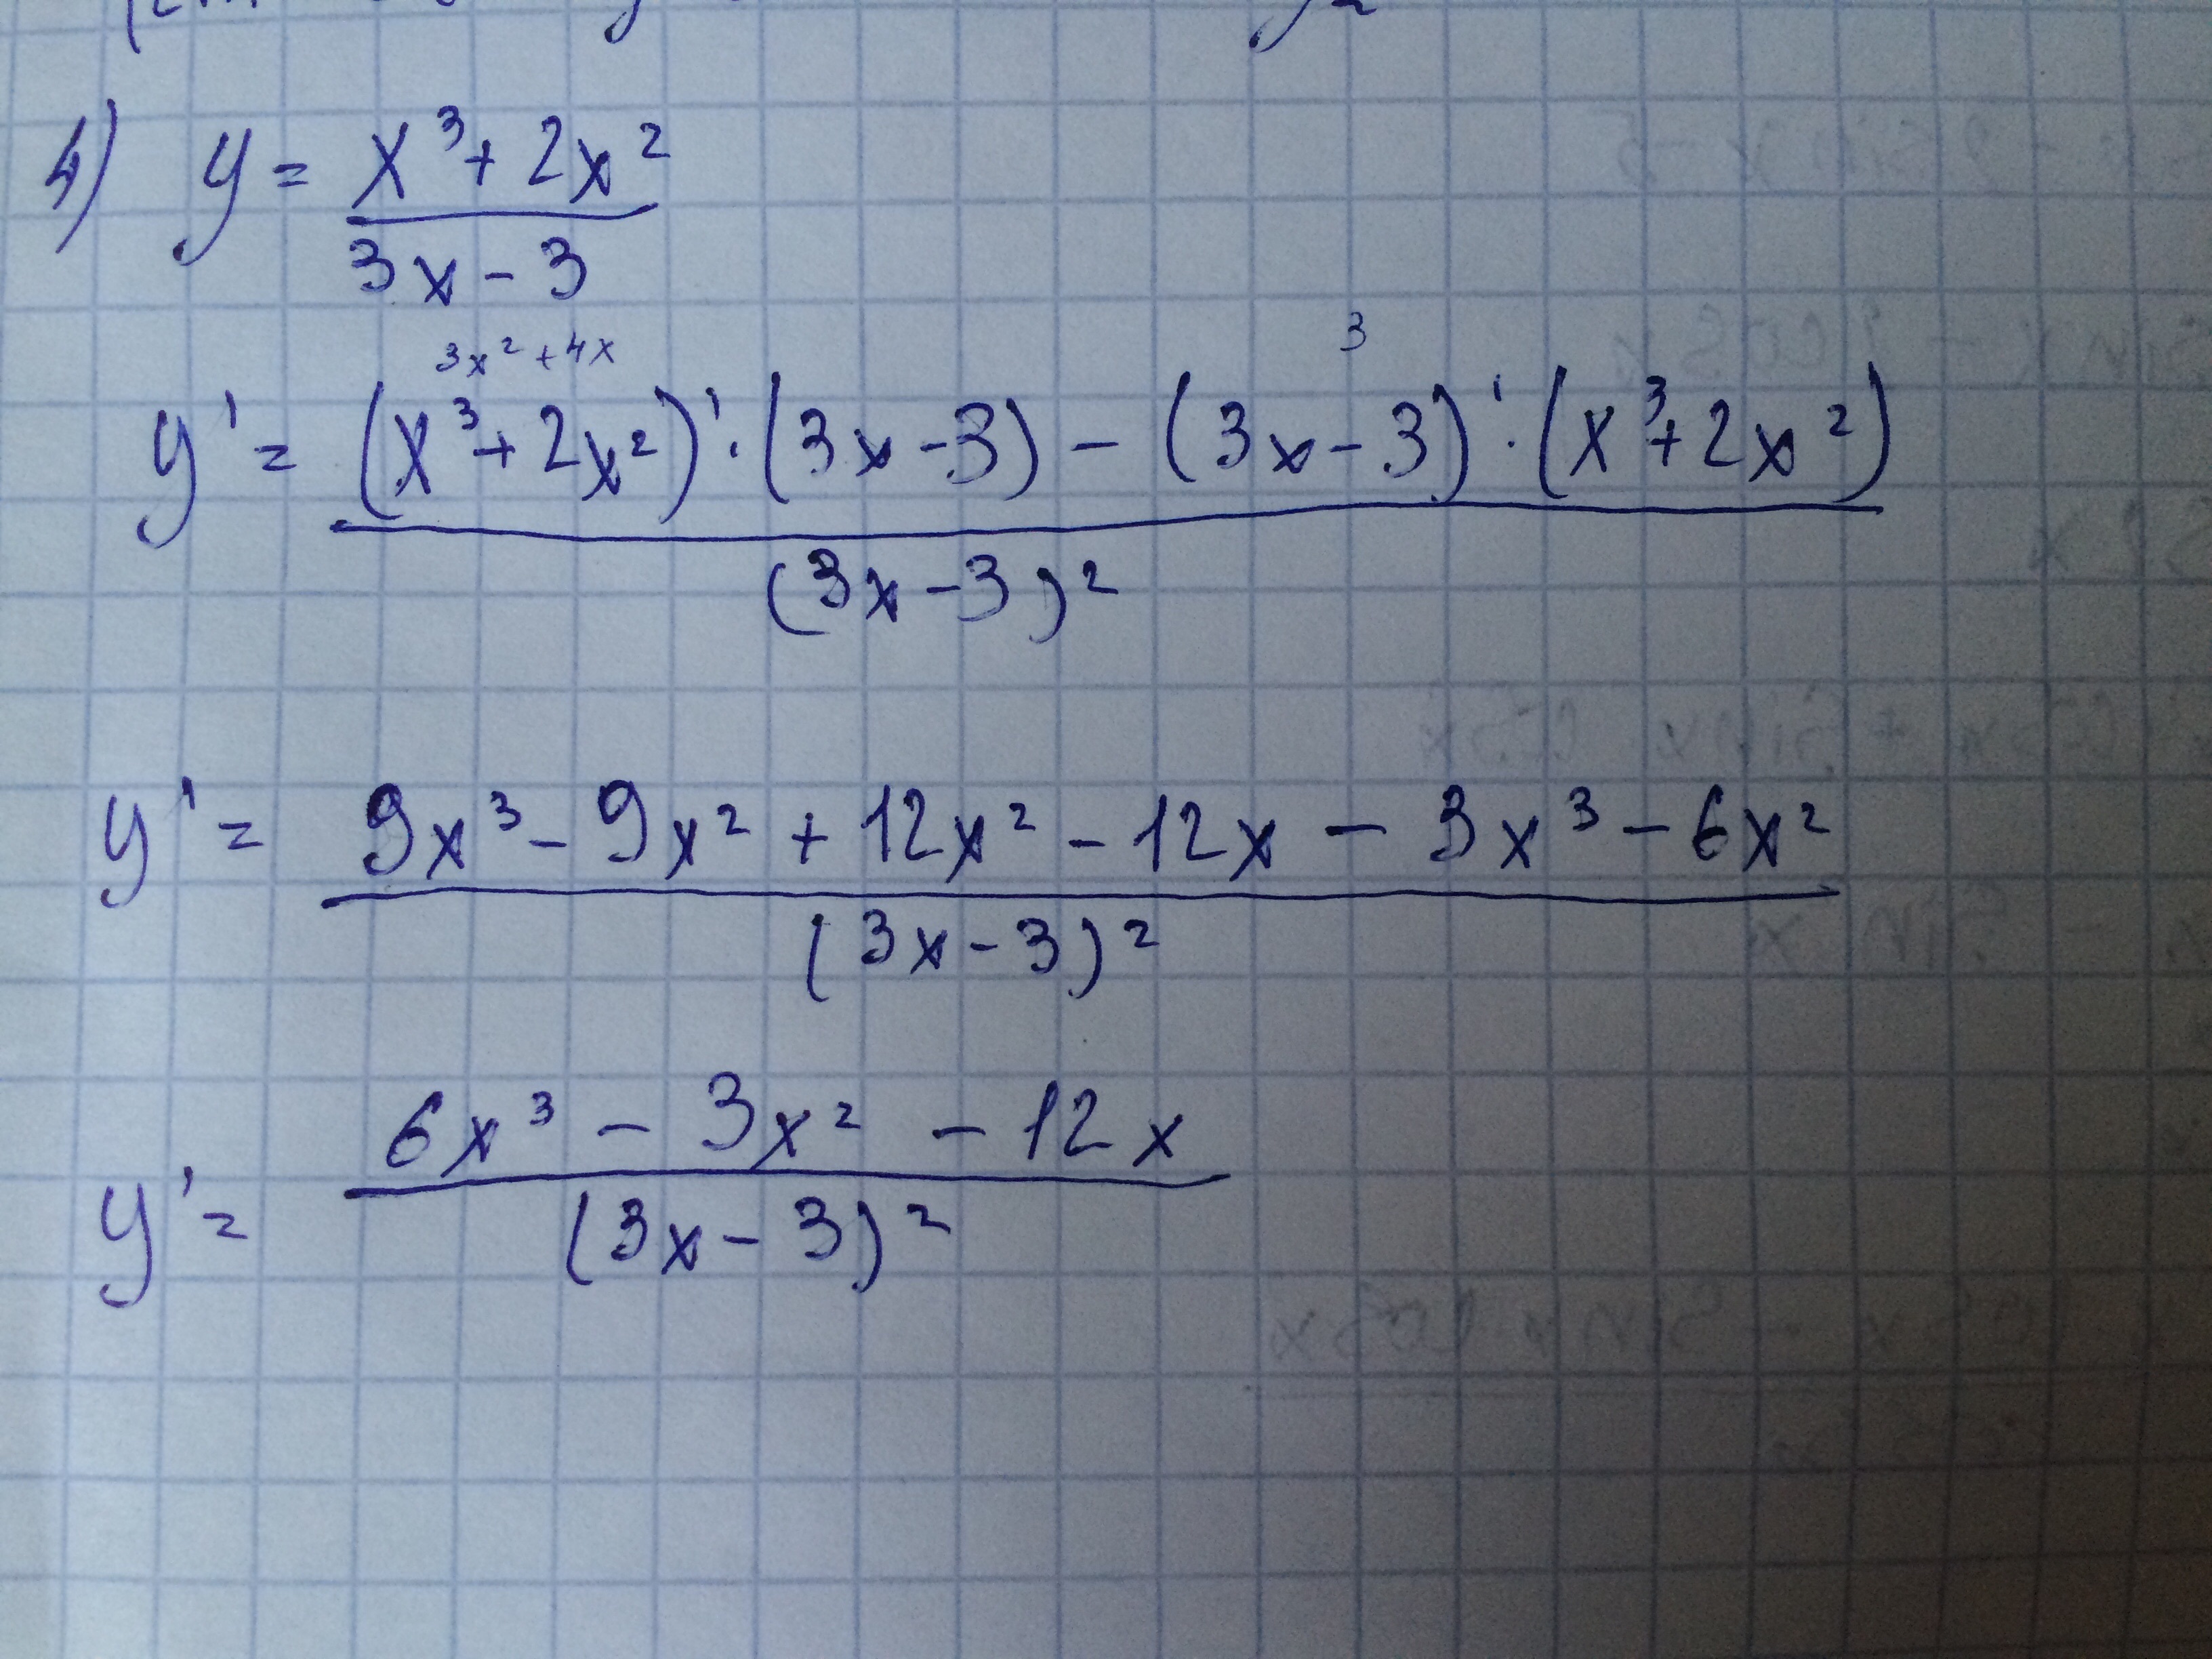 4) y = (x³ + 2x²) / (3x - 3)
3x² + 4x 3
y' = ((x³ + 2x²)' · (3x - 3) - (3x - 3)' · (x³ + 2x²)) / (3x - 3)²
y' = (9x³ - 9x² + 12x² - 12x - 3x³ - 6x²) / (3x - 3)²
y' = (6x³ - 3x² - 12x) / (3x - 3)²